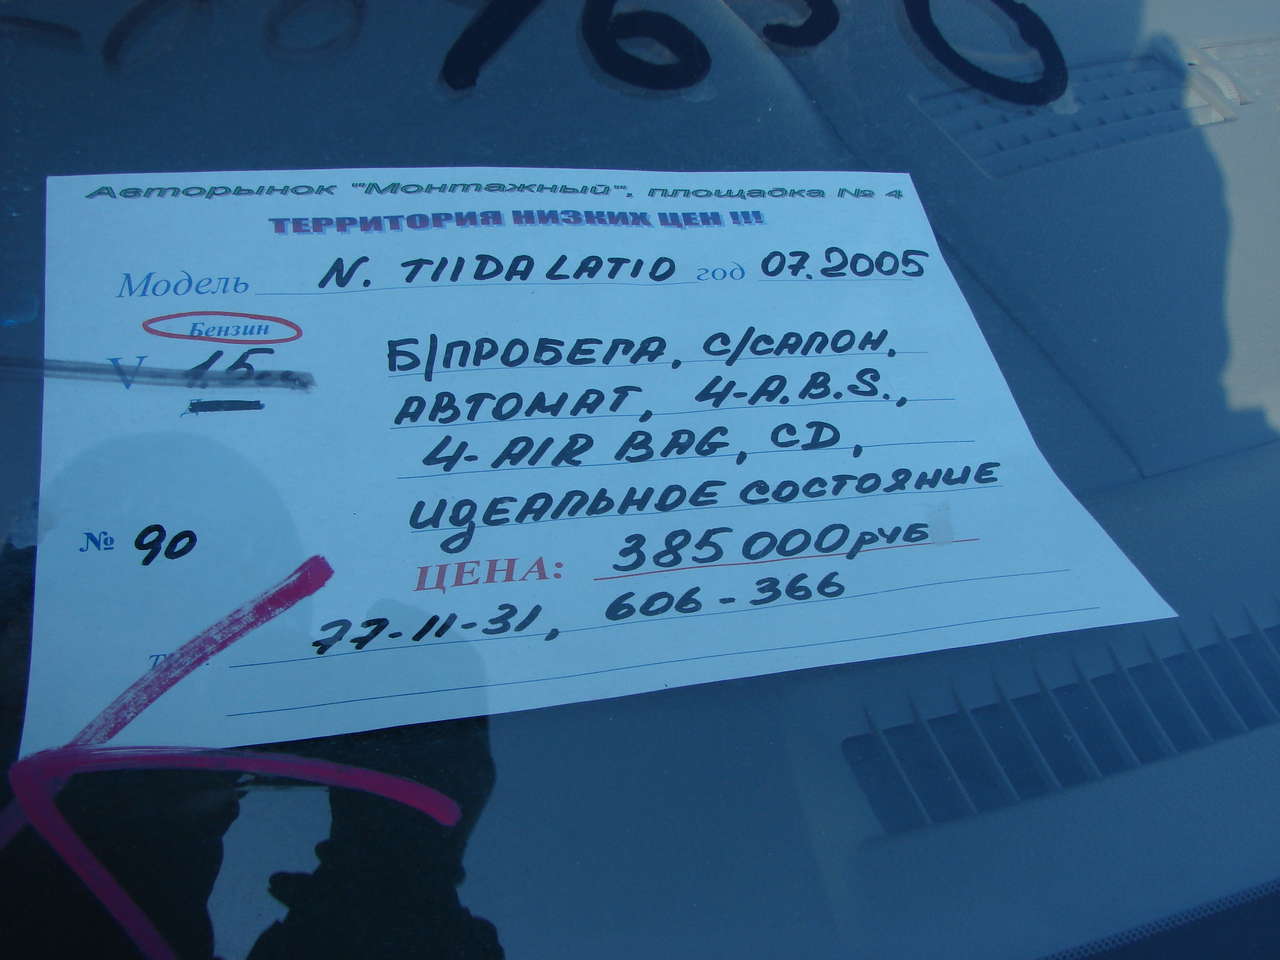 1630
Авторынок "Монтажный", площадка № 4
ТЕРРИТОРИЯ НИЗКИХ ЦЕН !!!
Модель N. TIIDA LATIO год 07.2005
Бензин
V 1,5
Б/ПРОБЕГА, С/САЛОН,
АВТОМАТ, 4-A.B.S.,
4-AIR BAG, CD,
ИДЕАЛЬНОЕ СОСТОЯНИЕ
№ 90
ЦЕНА: 385 000 руб
77-11-31, 606-366